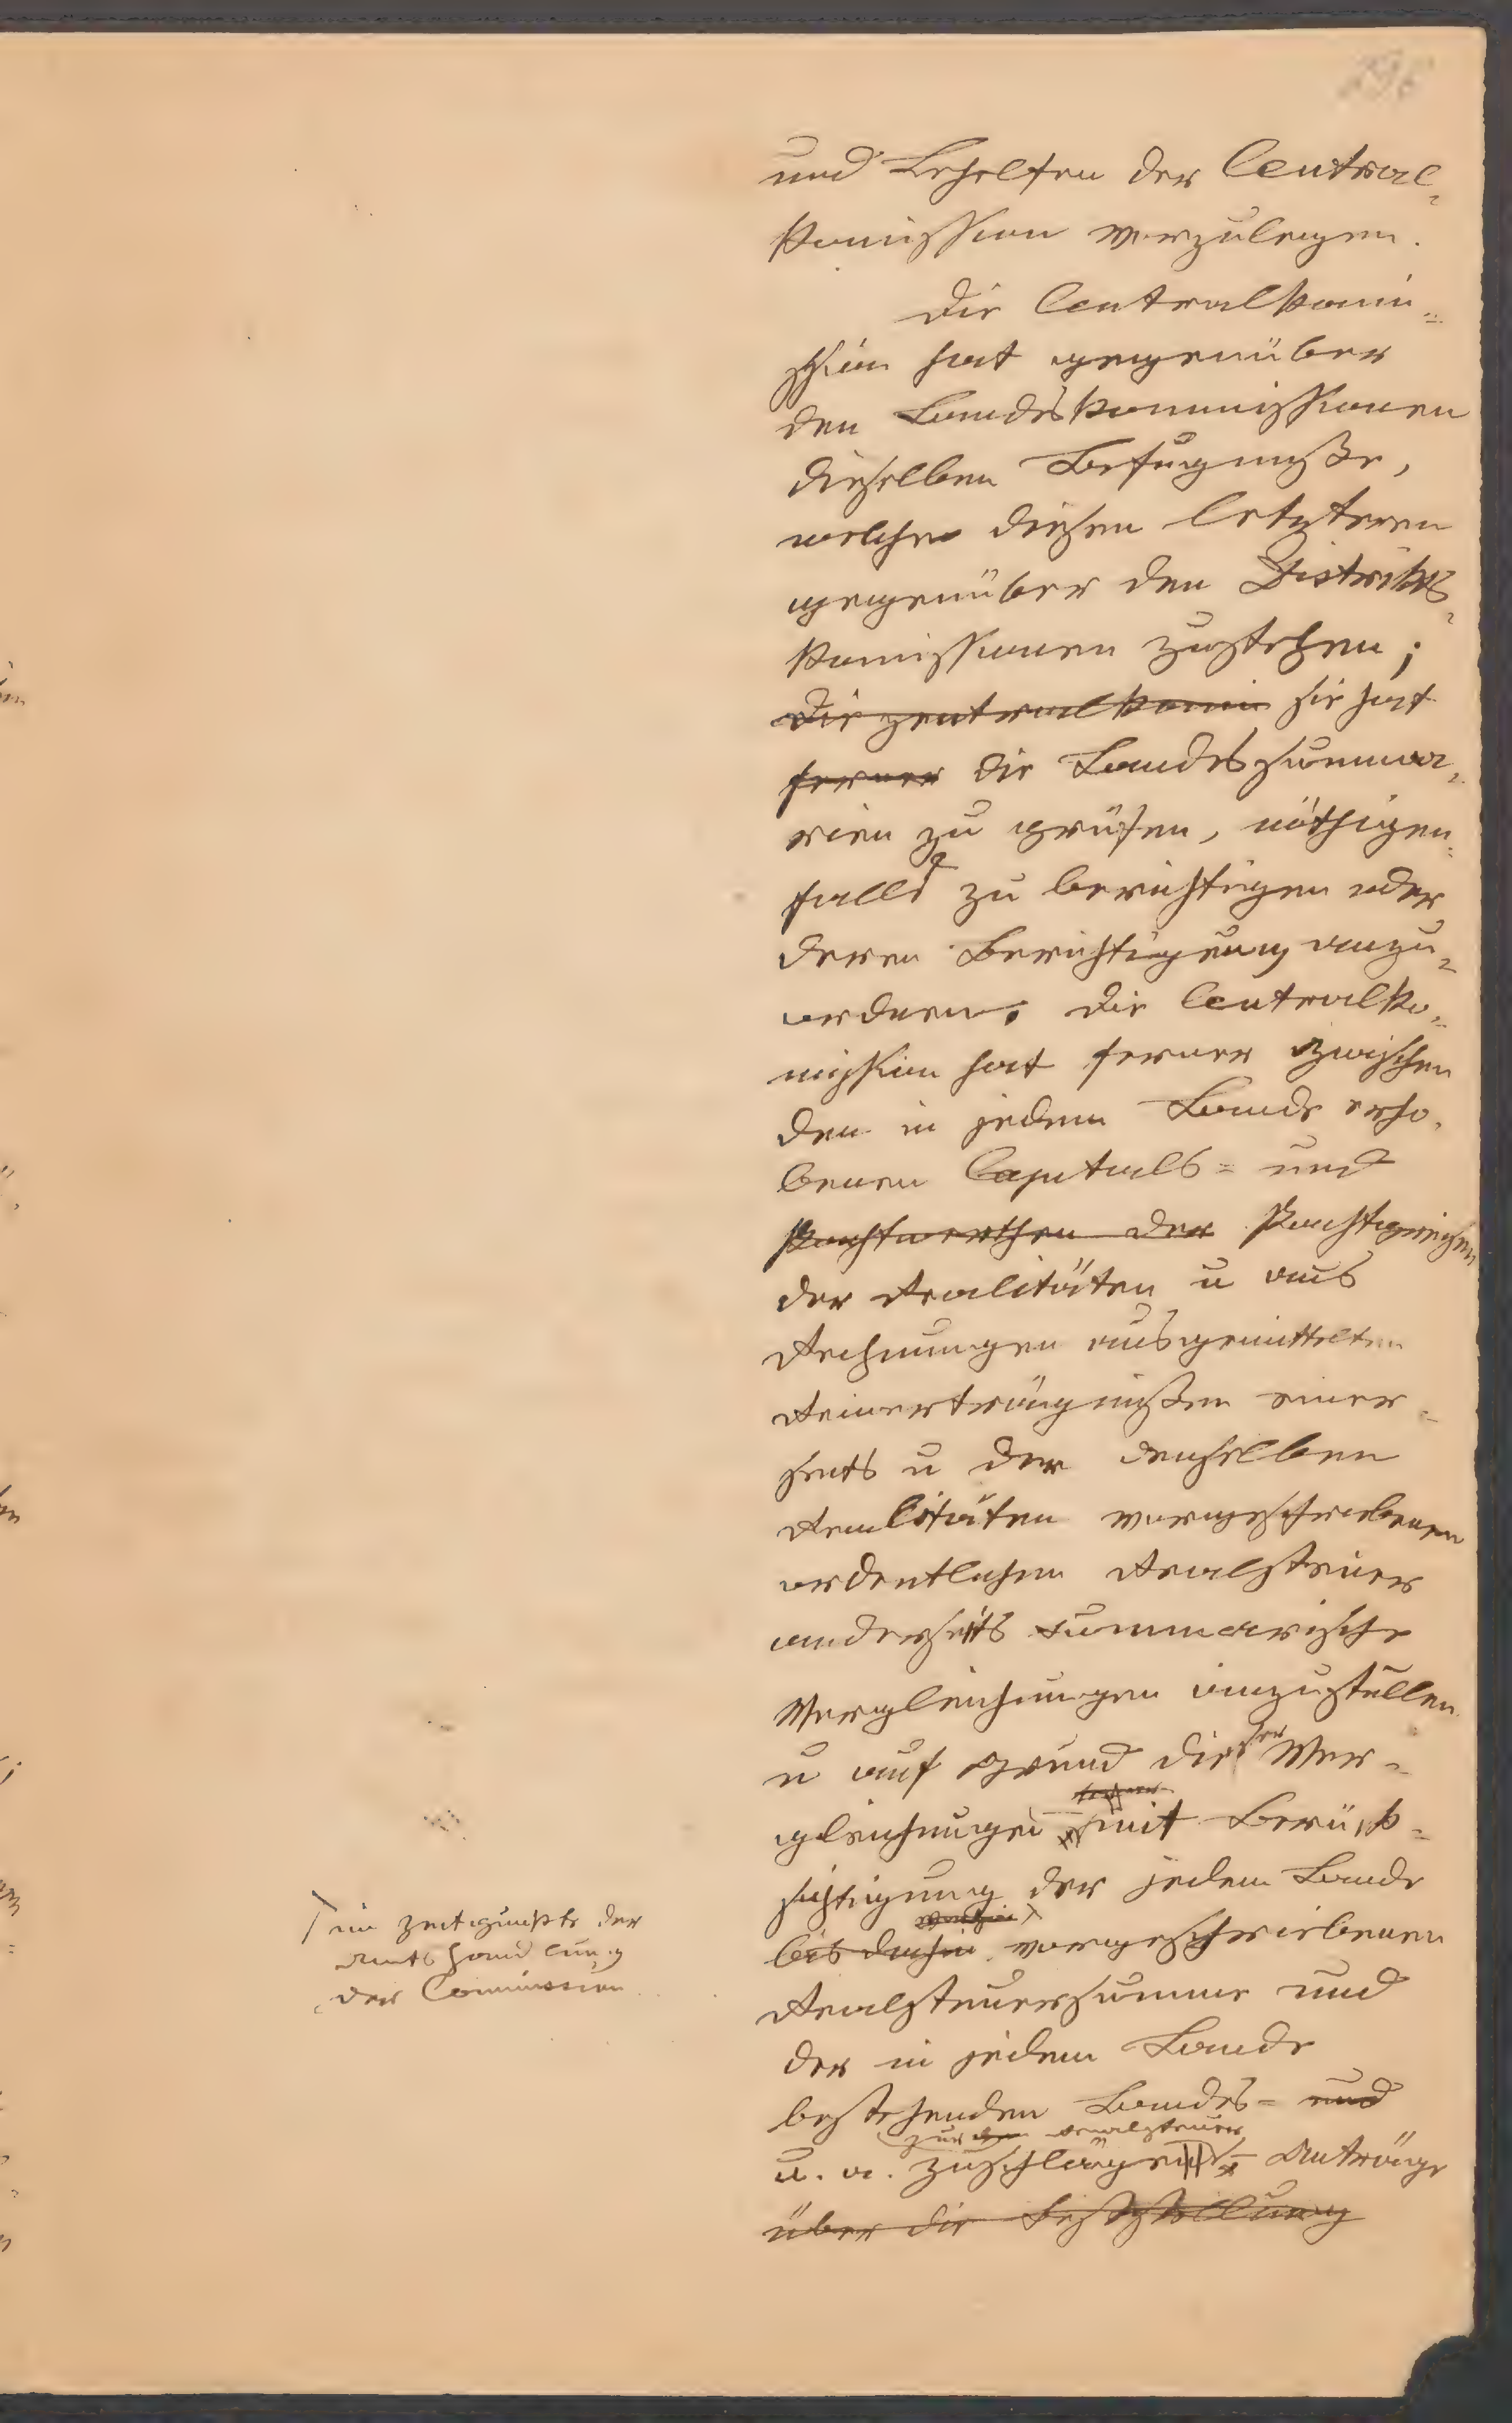 296
und Behelfen der Central-
komission vorzulegen.
Die Centralkomi-
ssion hat gegenüber
den Landeskommissionen
dieselben Befugnisse,
welche diesen letzteren
gegenüber den Distrikts-
komissionen zustehen;
Die Zentralkomi sie hat
ferner die Landessumma-
rien zu prüfen, nöthigen-
falls zu berichtigen oder
deren Berichtigung anzu-
ordnen. Die Centralko-
mission hat ferner zwischen
den in jedem Lande erho-
benen Capitals- und
Pachtwerthen der Pachtzinsen
der Realitäten u aus
Rechnungen ausgemittelten
Reinerträgnissen einer-
seits u der denselben
Realitäten vorgeschriebenen
ordentlichen Realsteuer
anderseits summarische
Vergleichungen anzustellen
u auf Grund dieser Ver-
gleichungen mit Berück-
sichtigung der jedem Lande
bis dahin vorgeschriebenen
Realsteuersumme und
der in jedem Lande
bestehenden Landes- und
zur Realsteuer
u. a. Zuschlägen Anträge
über die Feststellung
im Zeitpunkte der
Amtshandlung
der Commission